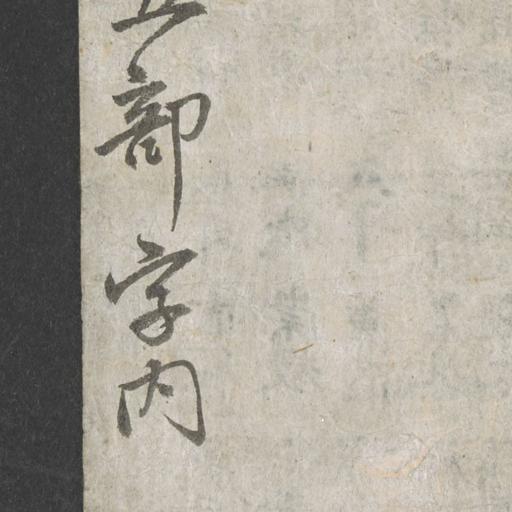 部字内